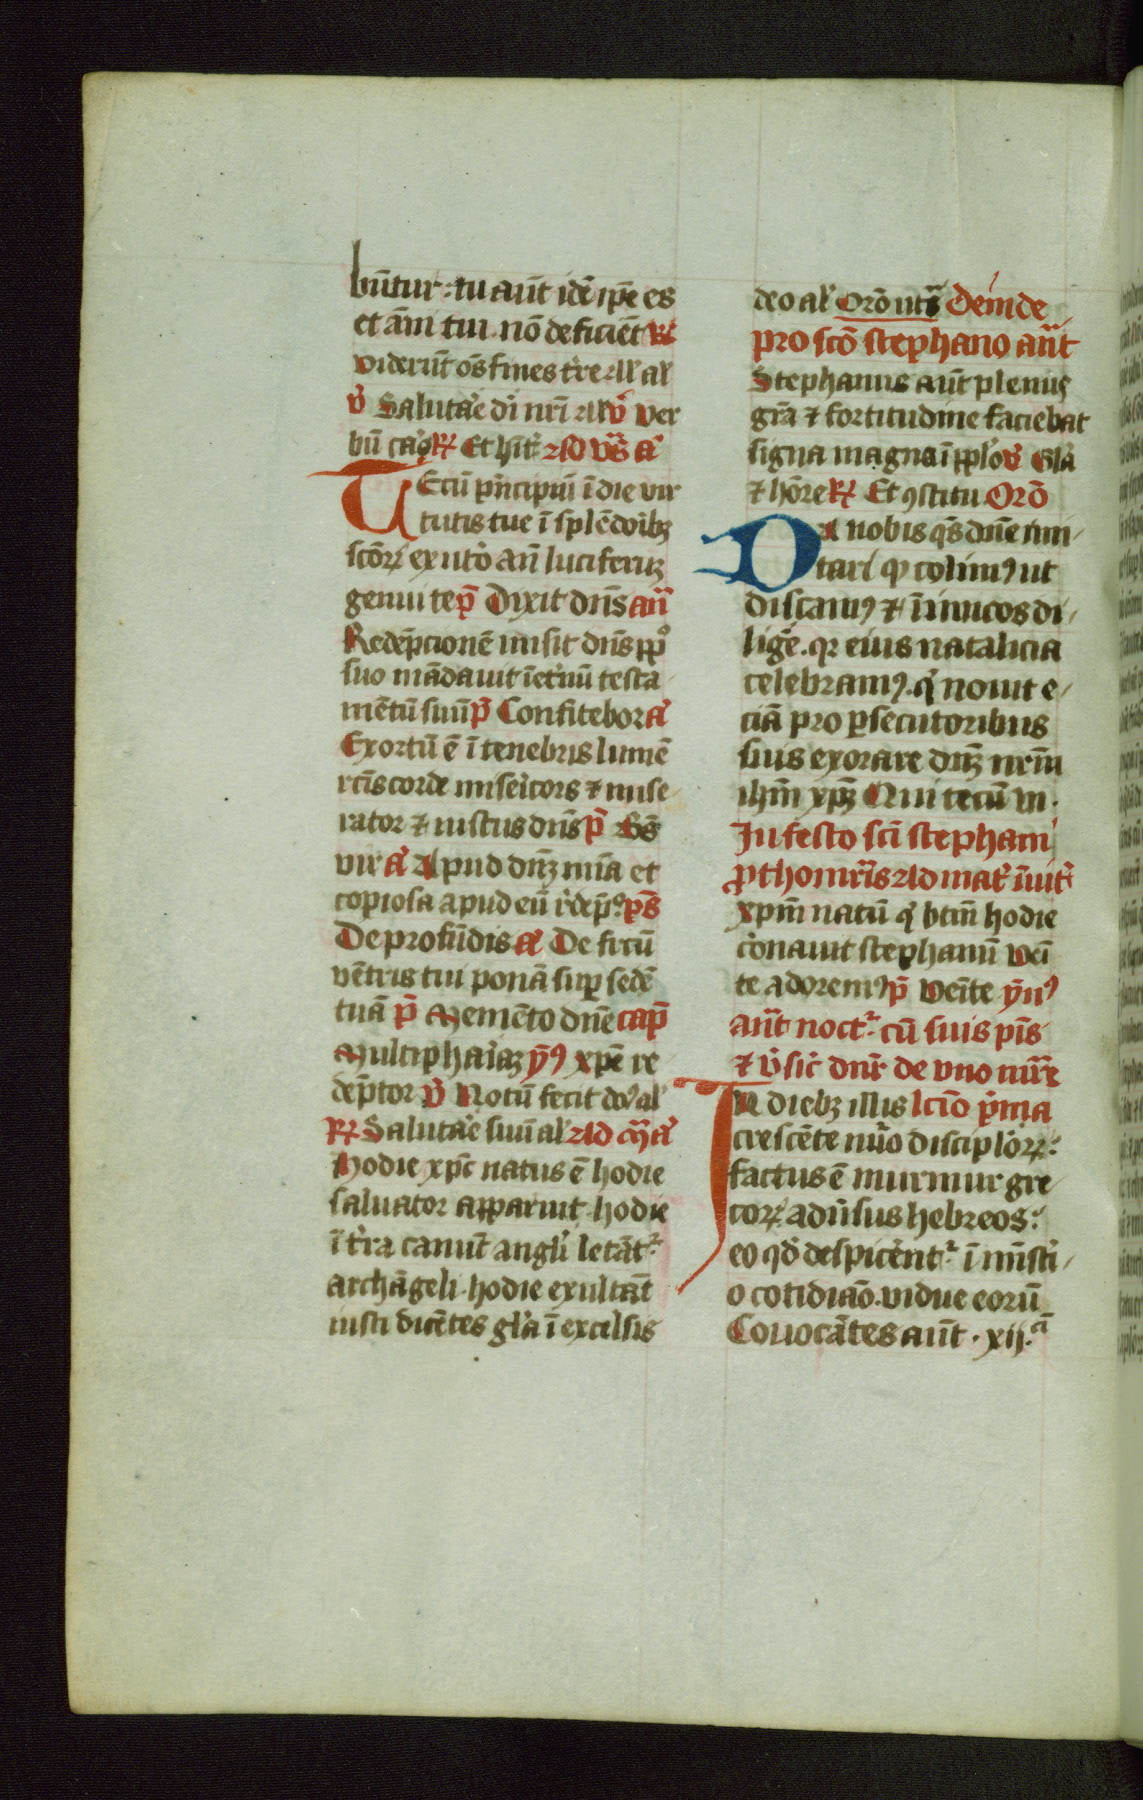 būtur· tu aūt idē ip̄e es
et ām tui nō deficiēt R
viderūt oēs fines t're all' al'
v̄ Saluta'e dī nrī all' v̄ ver
bū ca'o RR Et h'it' ad vꝭ a'
Tecū p'ncipiū ī die vir
tutis tue ī splēdorib;
scōrꝝ ex uto' añ luciferū
genui te p̄ Dixit dn̄s an̄
Redēpcionē misit dn̄s pp̄o
suo mādauit īet'nū testa
mētū suū p̄ Confitebor a'
Exortū ē ī tenebris lumē
rcīs corde mise'icors ⁊ mise
rator ⁊ iustus dn̄s p̄ Bs̄
vir a' Apud dn̄ꝫ mīa et
copiosa apud eū r'dēp̄° ps̄
De profūdis a' De fr̄cū
vētris tui ponā sup̄ sedē
tuā p̄ Memēto dn̄e cap̄
Multiphariaꝫ ȳ9 xp̄e re
dēptor v̄ Notū fecit do' al'
RR Saluta'e suū al' ad m̄ a'
Hodie xp̄c natus ē hodie
saluator apparuit hodie
ī t'ra canūt angli' letāt'
archāgeli hodie exultāt
iusti dicētes gl'a ī excelsis
deo al' Orō ut s̄ Deinde
pro scō stephano an̄t
Stephanus aūt plenus
grā ⁊ fortitudine faciebat
signa magna ī pplo' v̄ Gl'a
⁊ hōre RR Et 9stitu Orō
Da nobis qs̄ dn̄e imi
tari qd' colim9 ut
discam9 ⁊ īimicos di
lige'. qr eius natalicia
celebram9. q' nouit e
ciā pro p̄secutoribus
suis exorare dn̄ꝫ nrm̄
ihm̄ xp̄ꝫ Qui tecū vi.
In festo scī stephani
p̄thomr̄is ad mat' īuit'
xpm̄ natū q' btm̄ hodie
c'onauit stephanū vēi
te adorem9 p̄ Veīte ȳn9
an̄t noct' cū suis p̄is
⁊ v̄sic' dnr̄ de vno mr̄re
In dieb; illis lcīo p'ma
crescēte nu'o discip lo'rꝝ·
factus ē murmur gre
corꝝ adūsus hebreos·
eo qd' despice'nt' ī mīst'i
o cotidiāo. vidue eorū
Cōuocātes aūt · xij·ci